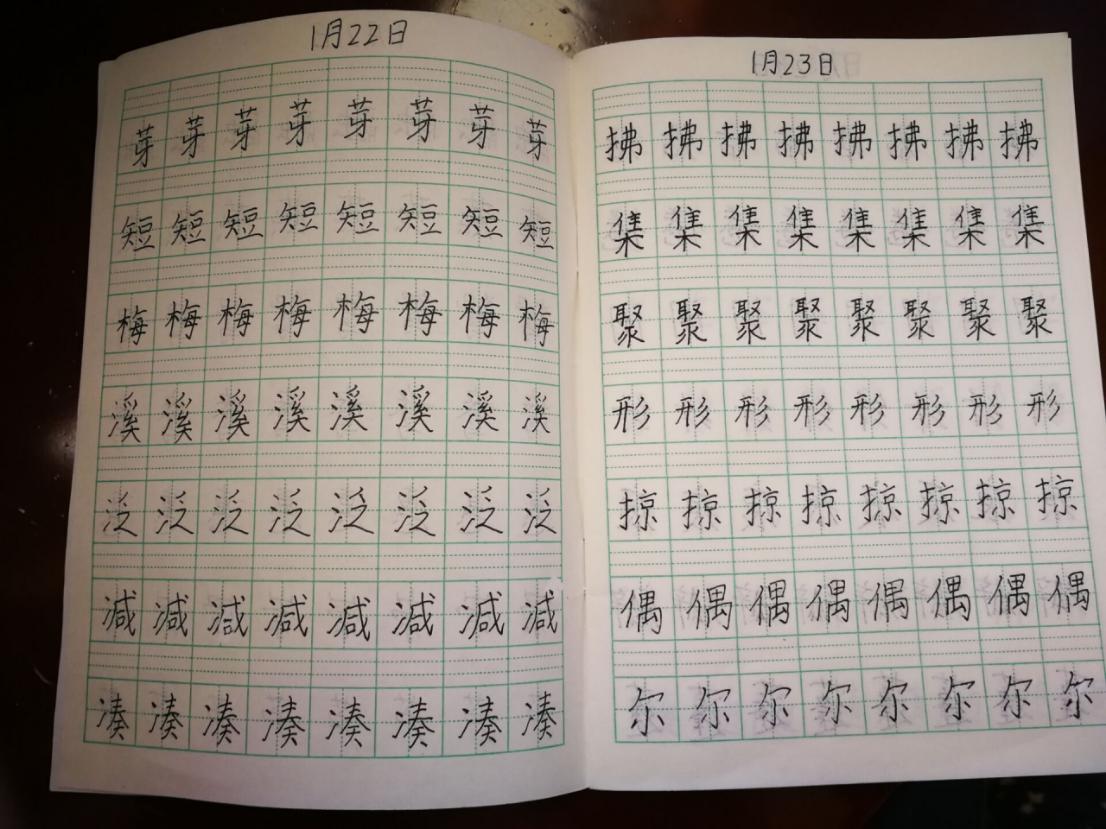 1月22日
芽 芽 芽 芽 芽 芽 芽 芽
短 短 短 短 短 短 短 短
梅 梅 梅 梅 梅 梅 梅 梅
溪 溪 溪 溪 溪 溪 溪 溪
泛 泛 泛 泛 泛 泛 泛 泛
减 减 减 减 减 减 减 减
凑 凑 凑 凑 凑 凑 凑 凑
1月23日
拂 拂 拂 拂 拂 拂 拂 拂
集 集 集 集 集 集 集 集
聚 聚 聚 聚 聚 聚 聚 聚
形 形 形 形 形 形 形 形
掠 掠 掠 掠 掠 掠 掠 掠
偶 偶 偶 偶 偶 偶 偶 偶
尔 尔 尔 尔 尔 尔 尔 尔